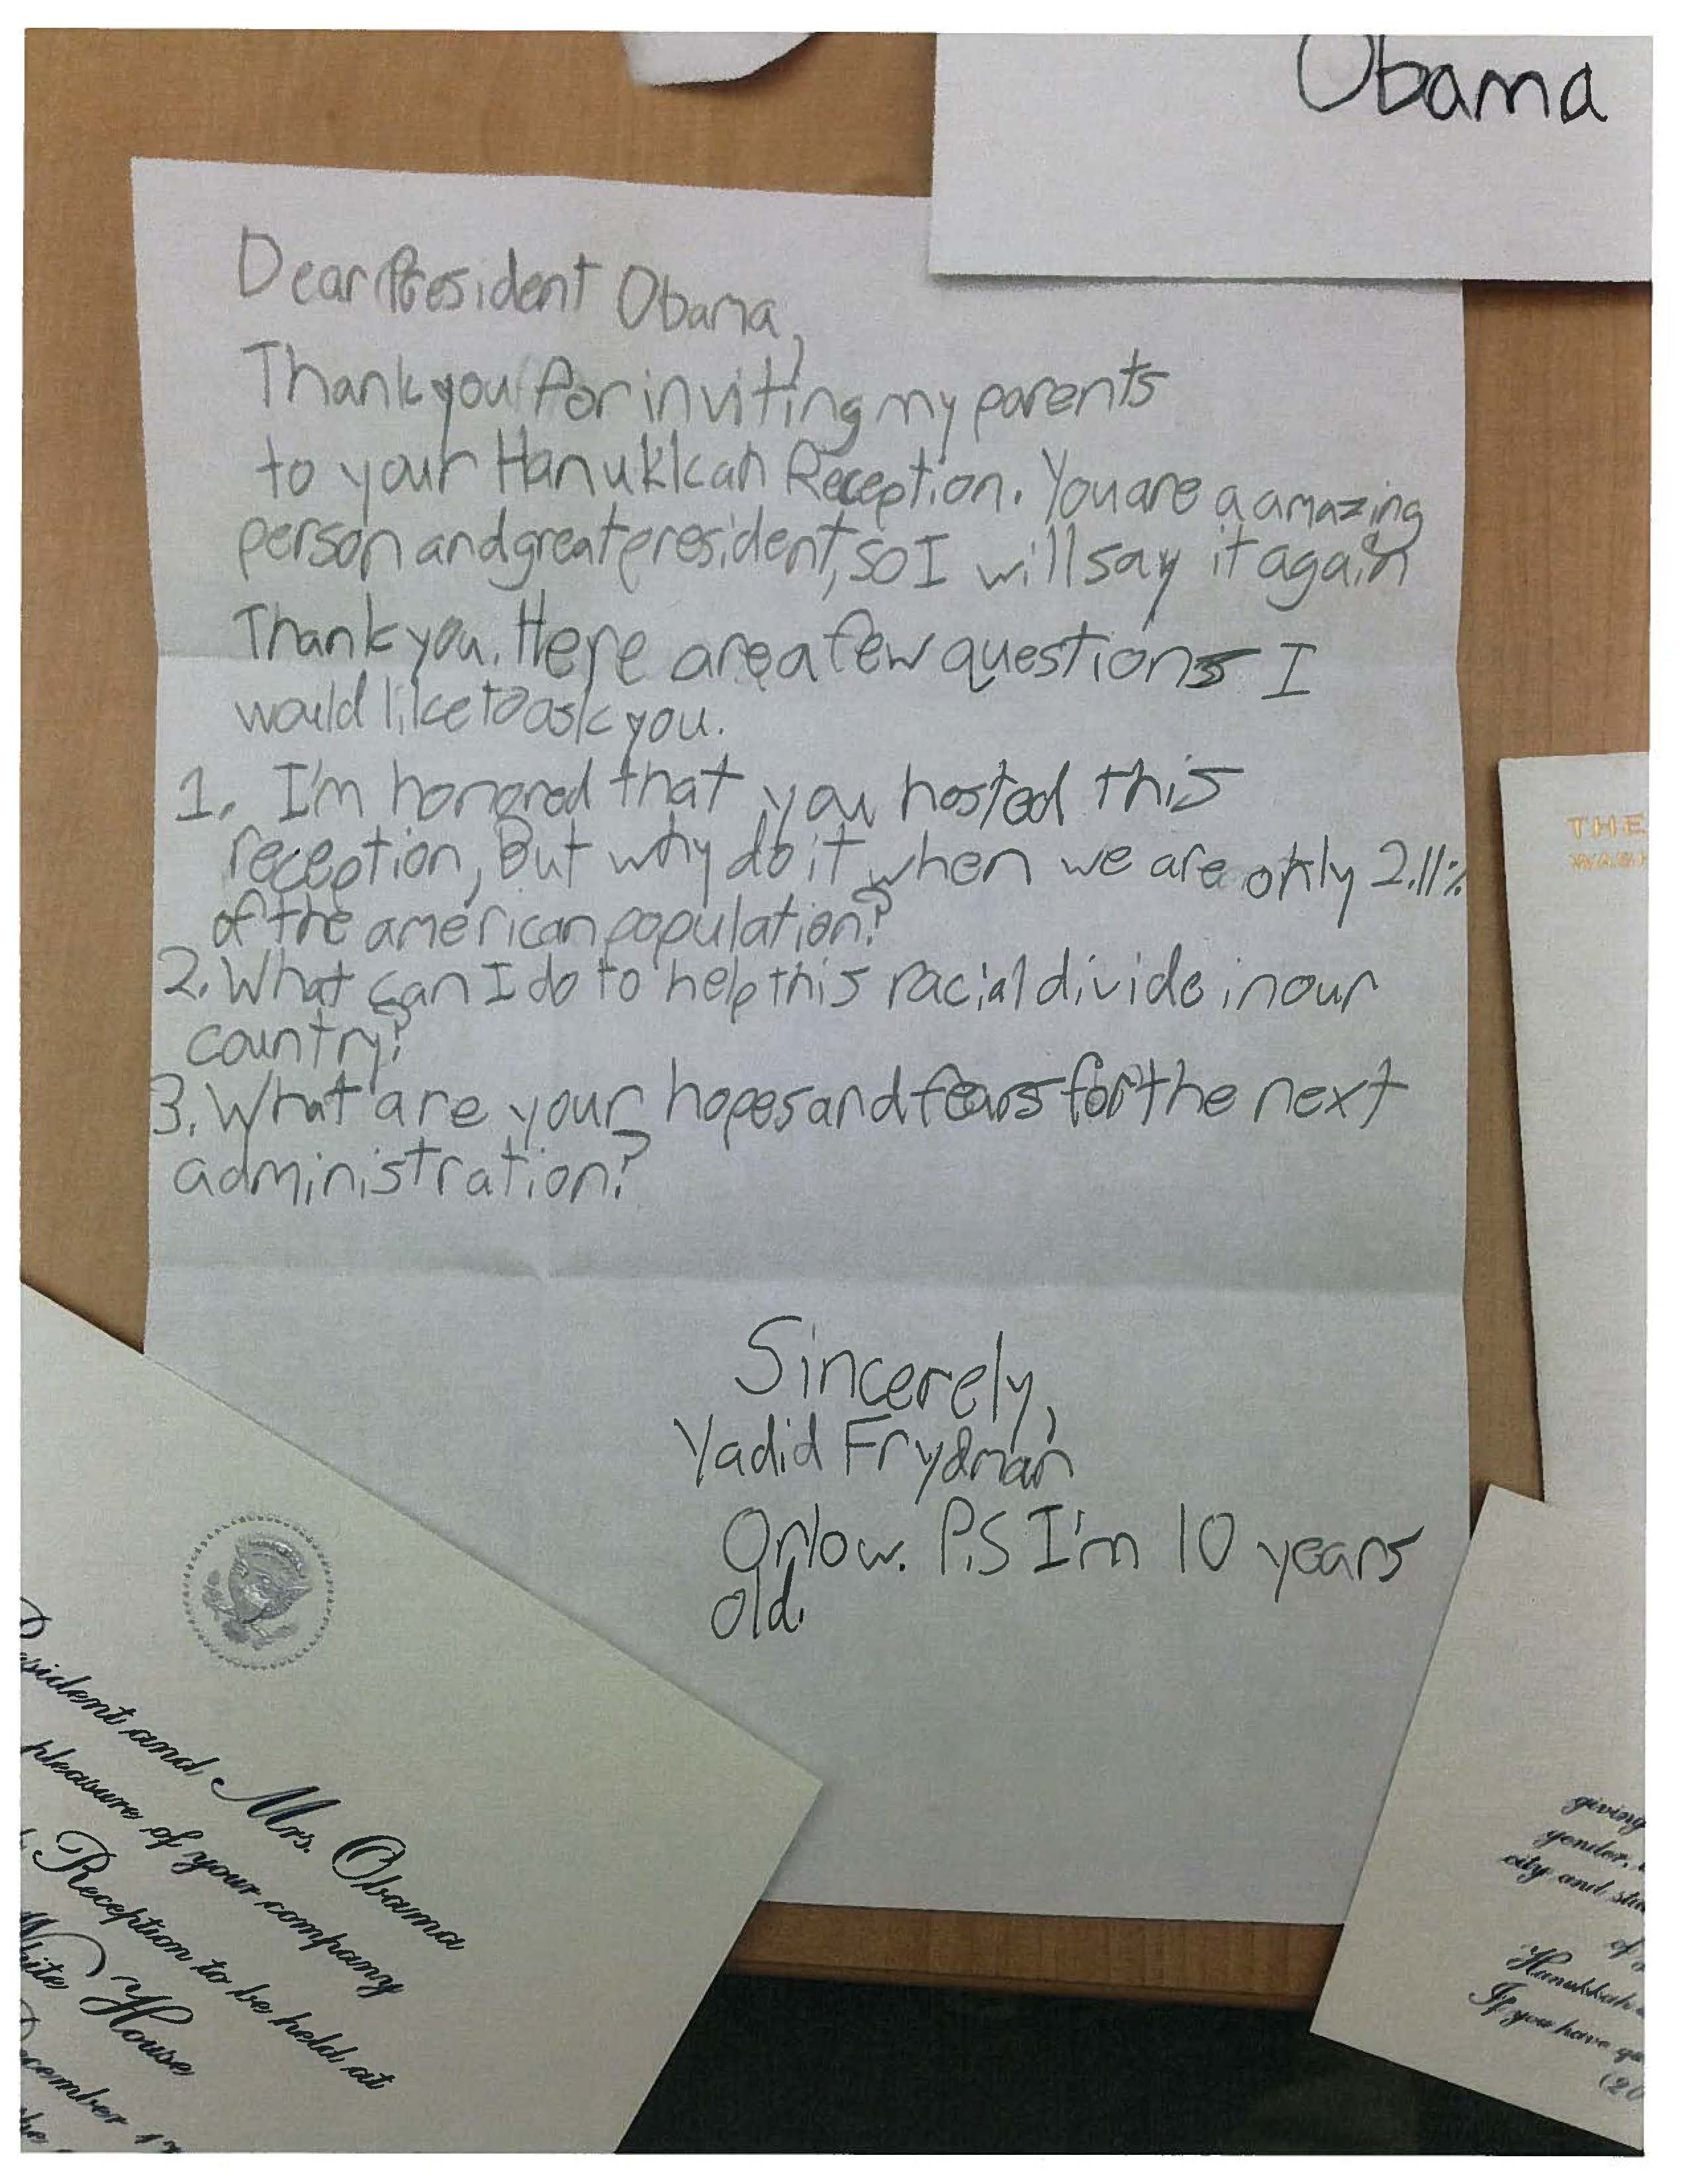 Obama
Dear President Obama,
Thank you for inviting my parents
to your Hanukkah Reception. You are a amazing
person and great president, so I will say it again
Thank you. Here are a few questions I
would like to ask you.
1. I'm honored that you hosted this
reception, But why do it when we are only 2.11%
of the american population?
2. What can I do to help this racial divide in our
country?
3. What are your hopes and fears for the next
administration?
Sincerely,
Yadid Frydman
Orlow. P.S I'm 10 years
old.
THE
esident and Mrs. Obama
pleasure of your company
Reception to be held at
White House
December 17
the
giving
gender,
city and sta
of
Hanukkah
If you have qu
(20